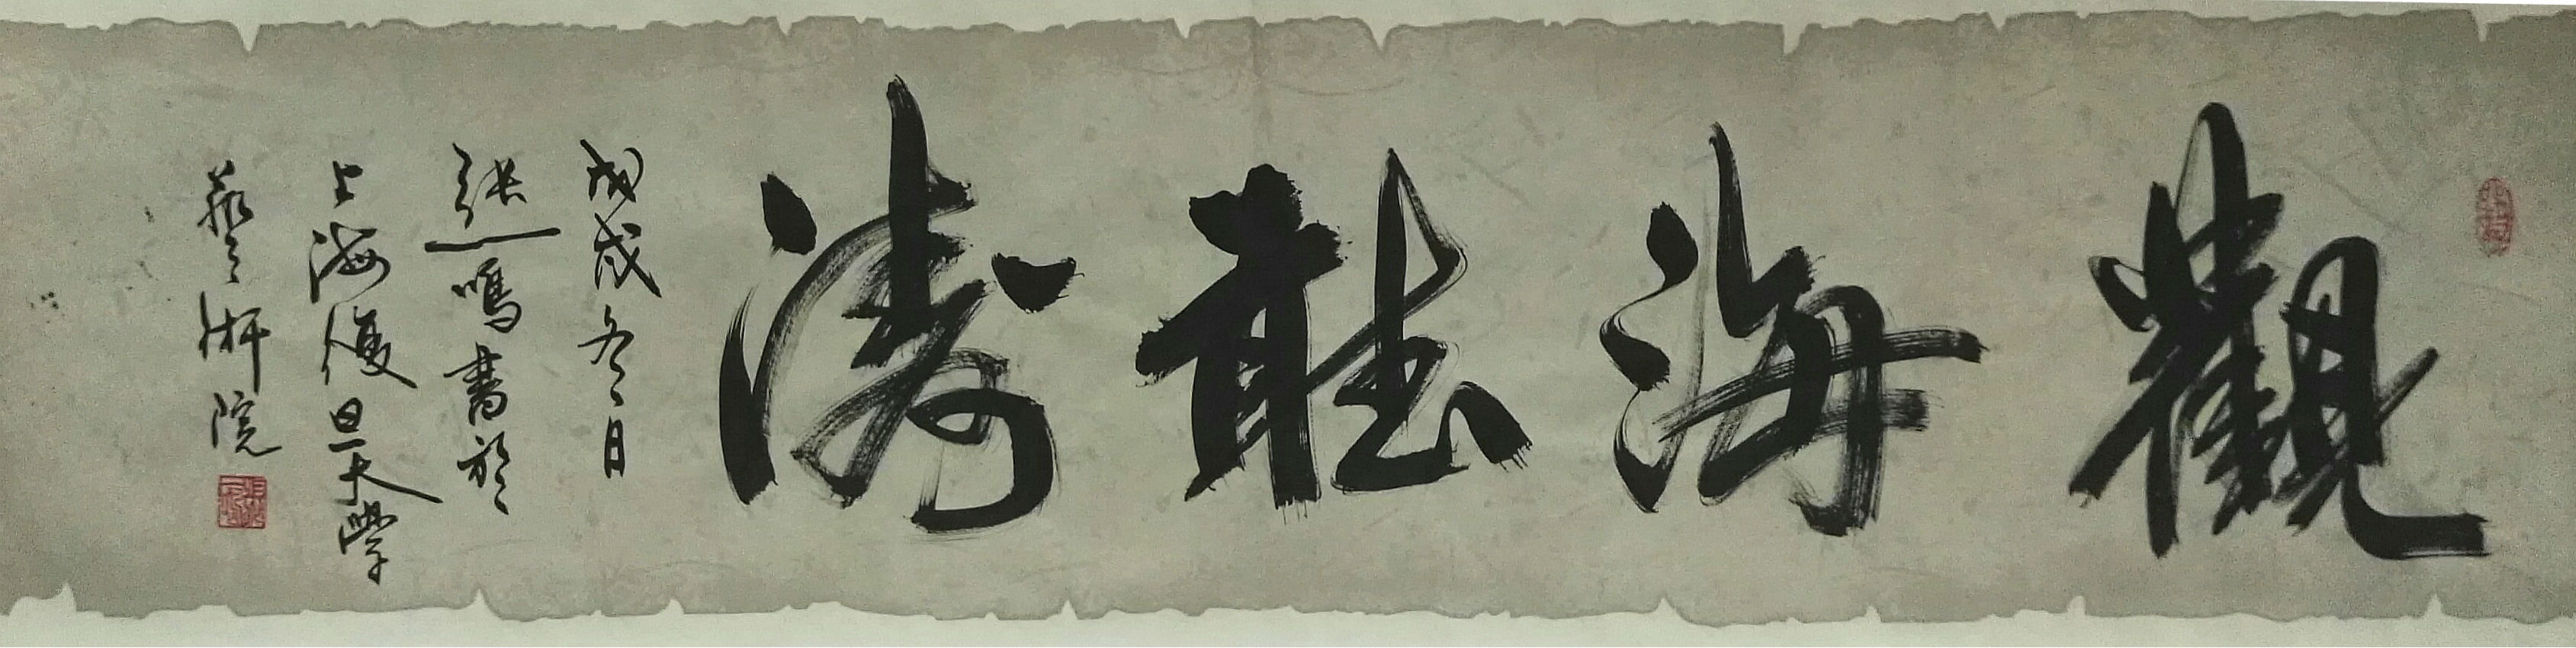 觀海聽濤
戊戌冬日
張一鳴書於
上海復旦大學
藝術院